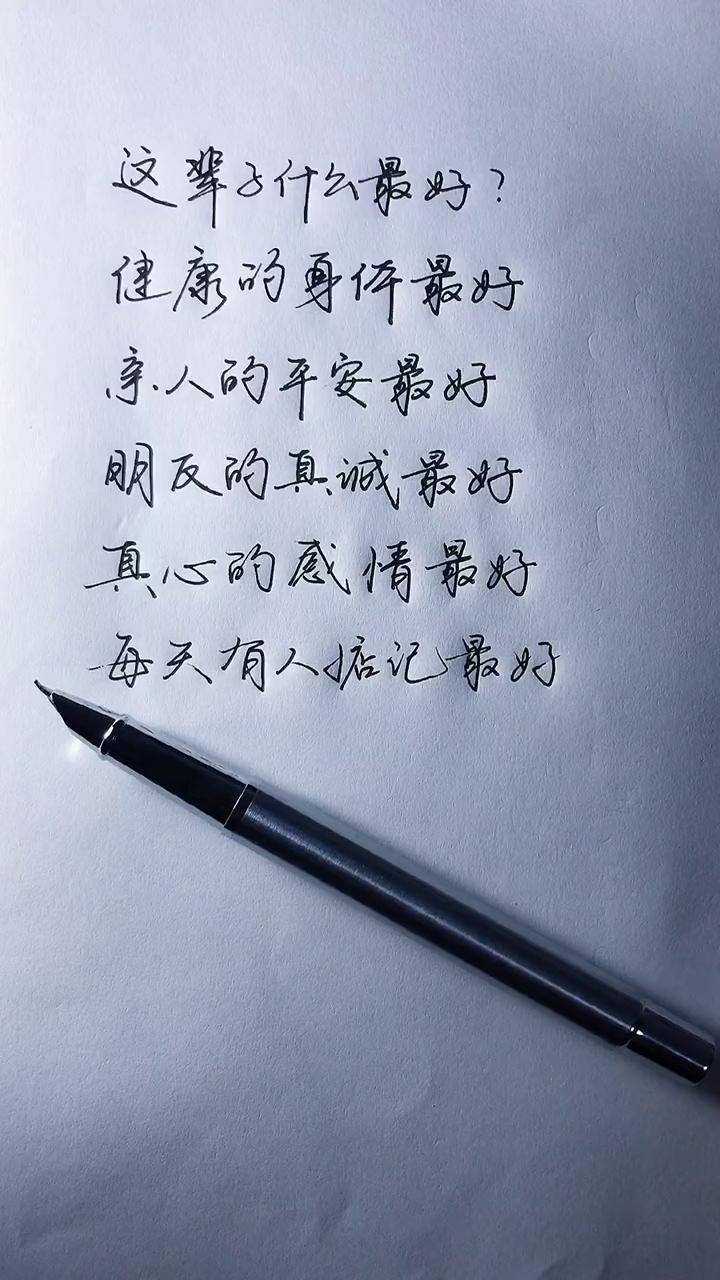 这辈子什么最好?
健康的身体最好
亲人的平安最好
朋友的真诚最好
真心的感情最好
每天有人惦记最好